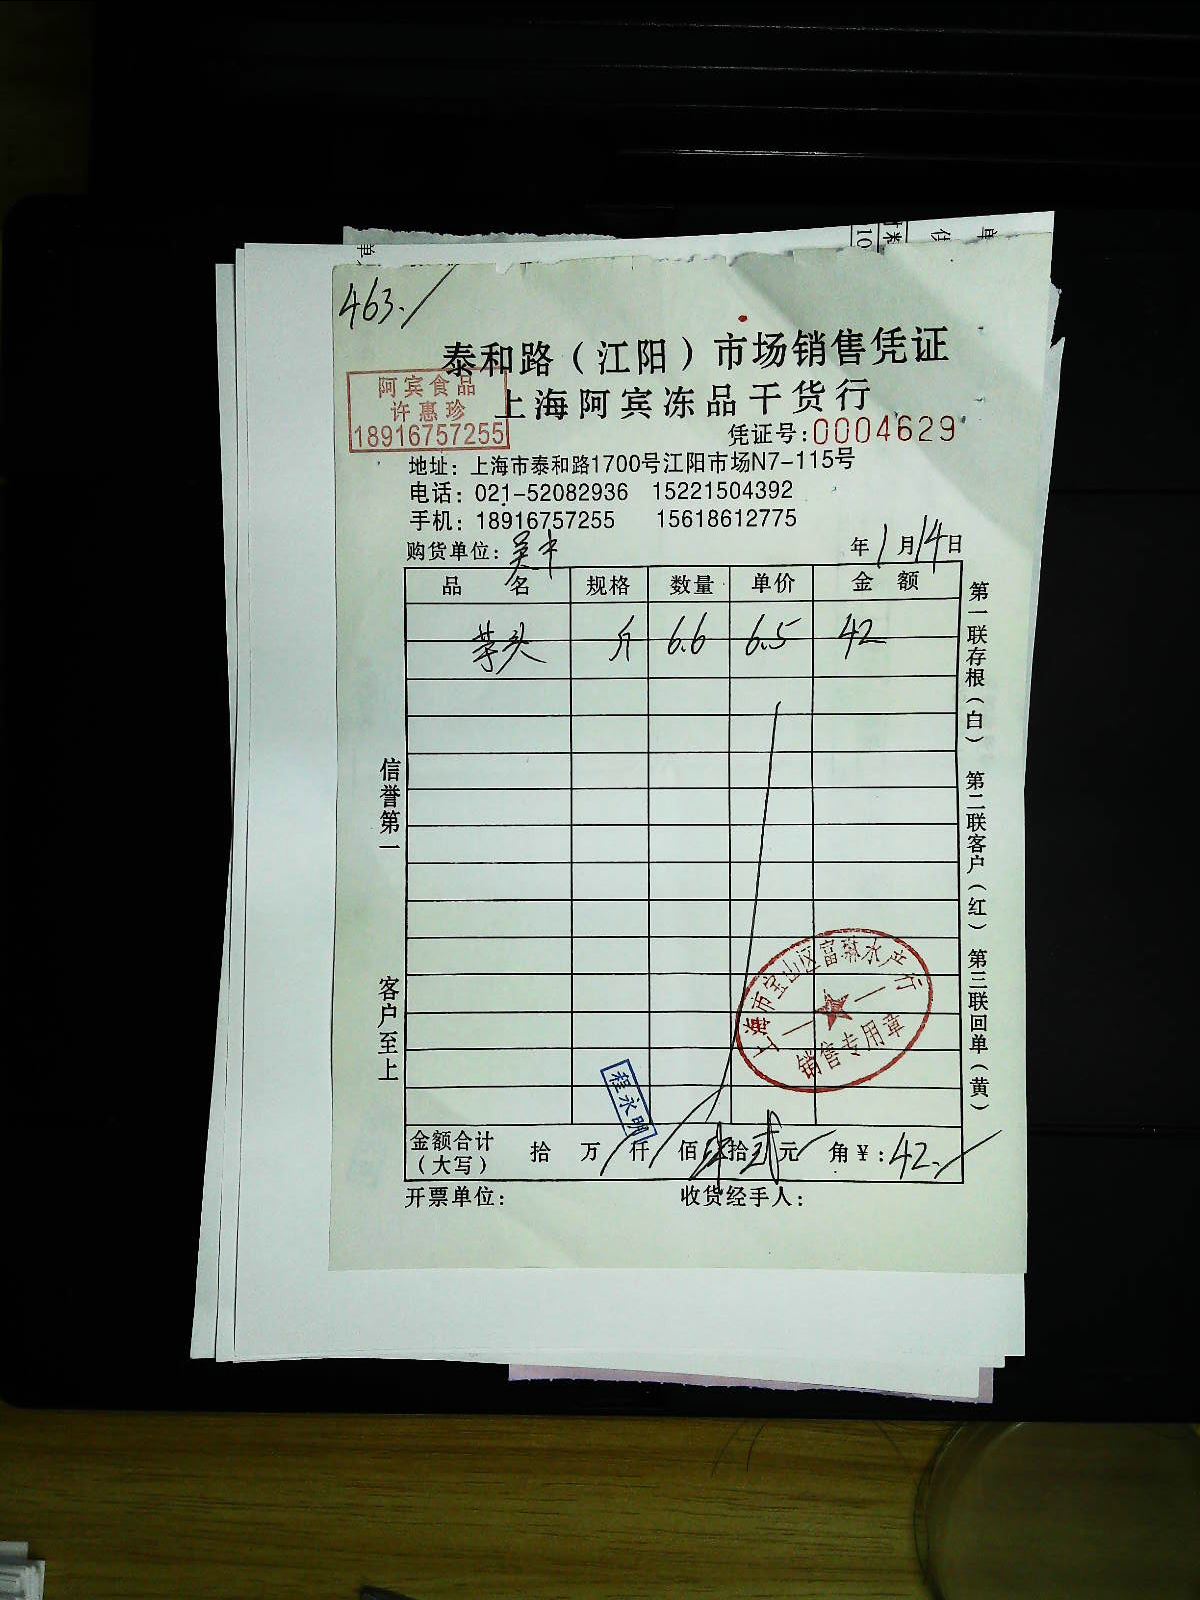 463.
泰和路（江阳）市场销售凭证
阿宾食品
许惠珍
18916757255
上海阿宾冻品干货行
凭证号:0004629
地址：上海市泰和路1700号江阳市场N7-115号
电话：021-52082936 15221504392
手机：18916757255 15618612775
购货单位：吴中 年1月14日
品 名 规格 数量 单价 金 额
芋头 斤 6.6 6.5 42
信誉第一
客户至上
第一联存根（白） 第二联客户（红） 第三联回单（黄）
上海市宝山区富琳水产行
销售专用章
程永明
金额合计（大写） 拾 万 仟 佰 肆拾贰元 角￥:42.
开票单位： 收货经手人：